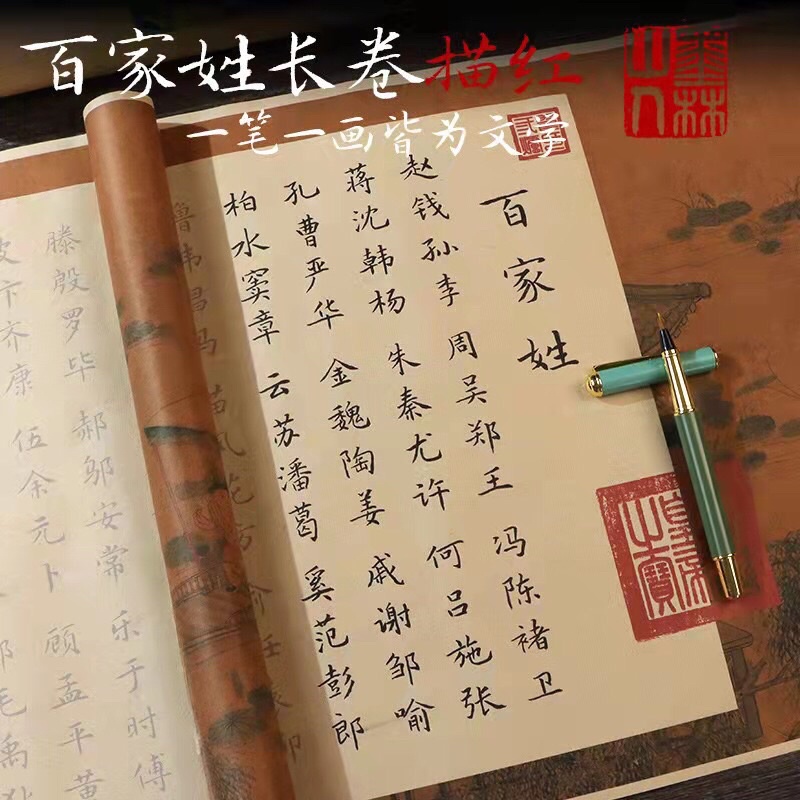 百家姓长卷描红
一笔一画皆为文学
百家姓
赵钱孙李 周吴郑王 冯陈褚卫
蒋沈韩杨 朱秦尤许 何吕施张
孔曹严华 金魏陶姜 戚谢邹喻
柏水窦章 云苏潘葛 奚范彭郎
鲁韦昌马 苗凤花方 俞任袁
滕殷罗毕 郝邬安常 乐于时傅
皮卞齐康 伍余元卜 顾孟平黄
毛禹狄
皇帝之寶